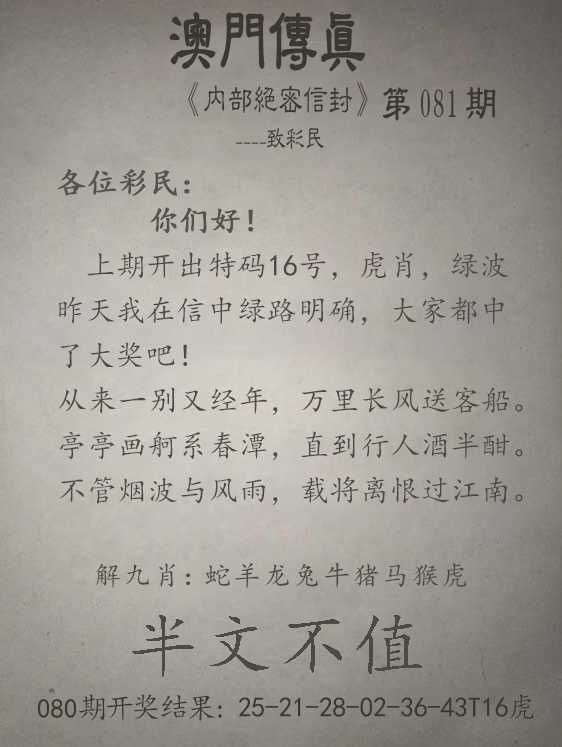 澳門傳真
《内部絕密信封》第081期
----致彩民
各位彩民：
你们好！
上期开出特码16号，虎肖，绿波
昨天我在信中绿路明确，大家都中
了大奖吧！
从来一别又经年，万里长风送客船。
亭亭画舸系春潭，直到行人酒半酣。
不管烟波与风雨，载将离恨过江南。
解九肖：蛇羊龙兔牛猪马猴虎
半文不值
080期开奖结果：25-21-28-02-36-43T16虎